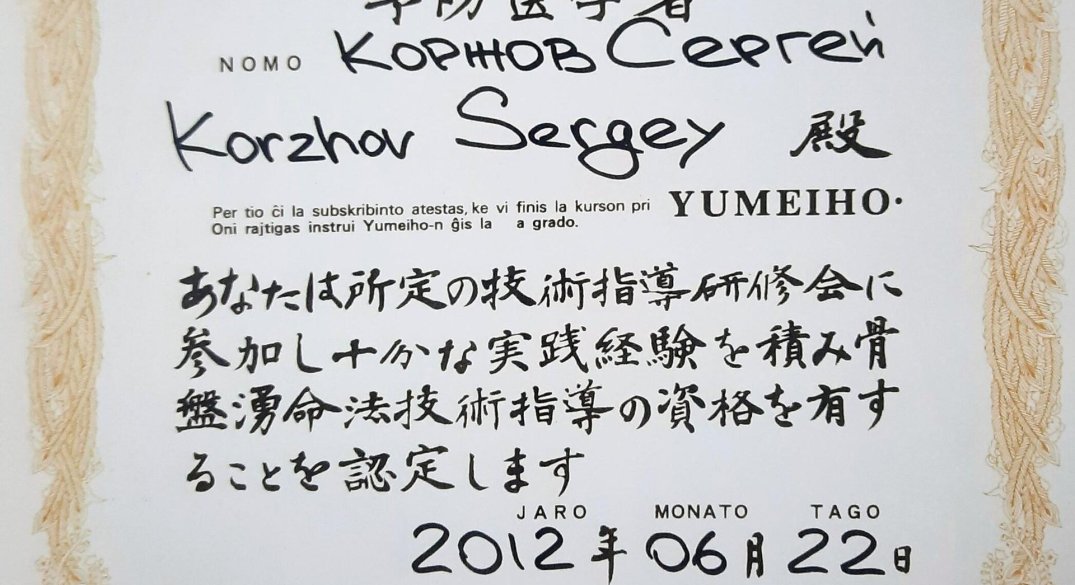 予防医学者
NOMO Коржов Сергей
Korzhov Sergey 殿
Per tio ĉi la subskribinto atestas, ke vi finis la kurson pri YUMEIHO.
Oni rajtigas instrui Yumeiho-n ĝis la a grado.
あなたは所定の技術指導研修会に
参加し十分な実践経験を積み骨
盤湧命法技術指導の資格を有す
ることを認定します
JARO MONATO TAGO
2012年 06月 22日